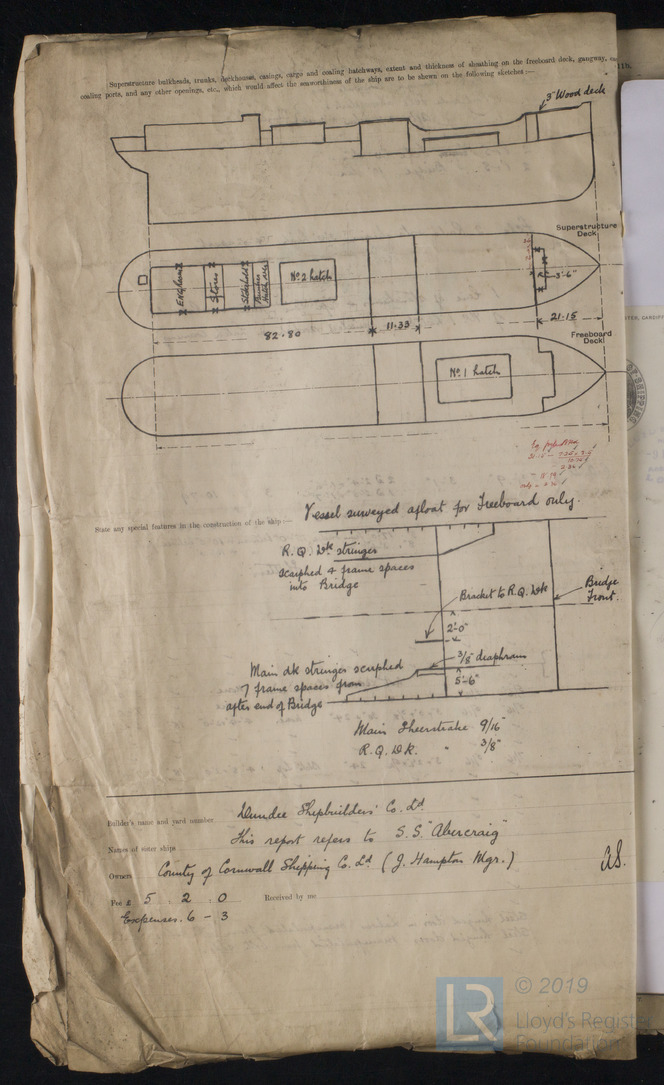 Superstructure bulkheads, trunks, deckhouses, casings, cargo and coaling hatchways, extent and thickness of sheathing on the freeboard deck, gangway,
coaling ports, and any other openings, etc., which would affect the seaworthiness of the ship are to be shewn on the following sketches:—
3" Wood deck
Superstructure
Deck
Engines
Stores
Stokehold
No. 2 hatch
3'-6"
82·80
11·33
21·15
Freeboard
Deck
No. 1 hatch
State any special features in the construction of the ship:—
Vessel surveyed afloat for Freeboard only.
R.Q. Dk stringers
scarphed 4 frame spaces
into Bridge
Bracket to R.Q. Dk
Bridge
Front.
2'-0"
3/8" diaphram
Main dk stringers scarphed
7 frame spaces from
after end of Bridge
5'-6"
Main Sheerstrake 9/16"
R.Q. Dk. " 3/8"
Builder's name and yard number
Dundee Shipbuilders' Co. Ld
Names of sister ships
This report refers to S.S. "Abercraig"
Owners
County of Cornwall Shipping Co. Ld (J. Hampton Mgr.)
Fee £ 5 : 2 : 0
Received by me
Expenses. 6 - 3
LR
© 2019
Lloyd's Register
Foundation